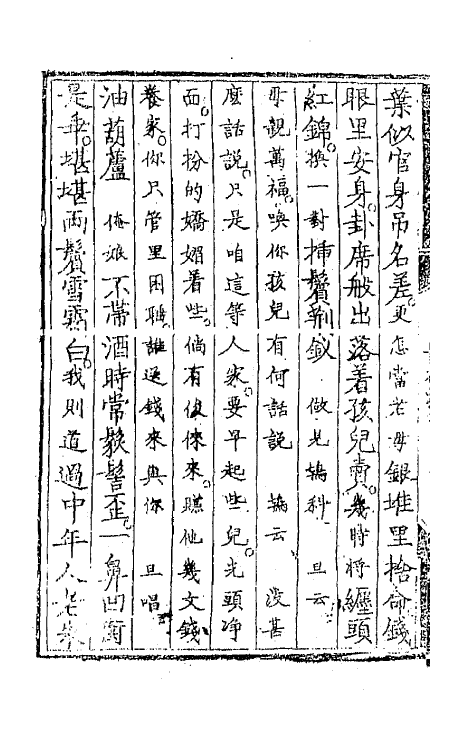 葉似官身吊名差。更怎當老母銀堆里捨命錢
眼里安身。卦席般出落着孩兒賣。幾時將纏頭
紅錦。換一對揷鬢荆釵　做見鴇科　旦云
母親萬福。喚你孩兒有何話說　鴇云　没甚
麽話說。只是咱這等人家。要早起些兒。光頭净
面。打扮的嬌媚着些。倘有俊倈來。賺他幾文錢
養家。你只管里困睡。誰送錢來與你　旦唱
油葫蘆　俺娘不帶酒時常鬏髻歪。一鼻凹衠
是乖。堪堪兩鬢雪霜白。我則道過中年人老朱